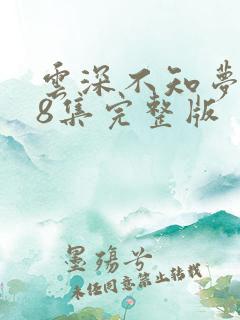 雲深不知夢
8集完整版
墨殤兮
未任同意禁止转载